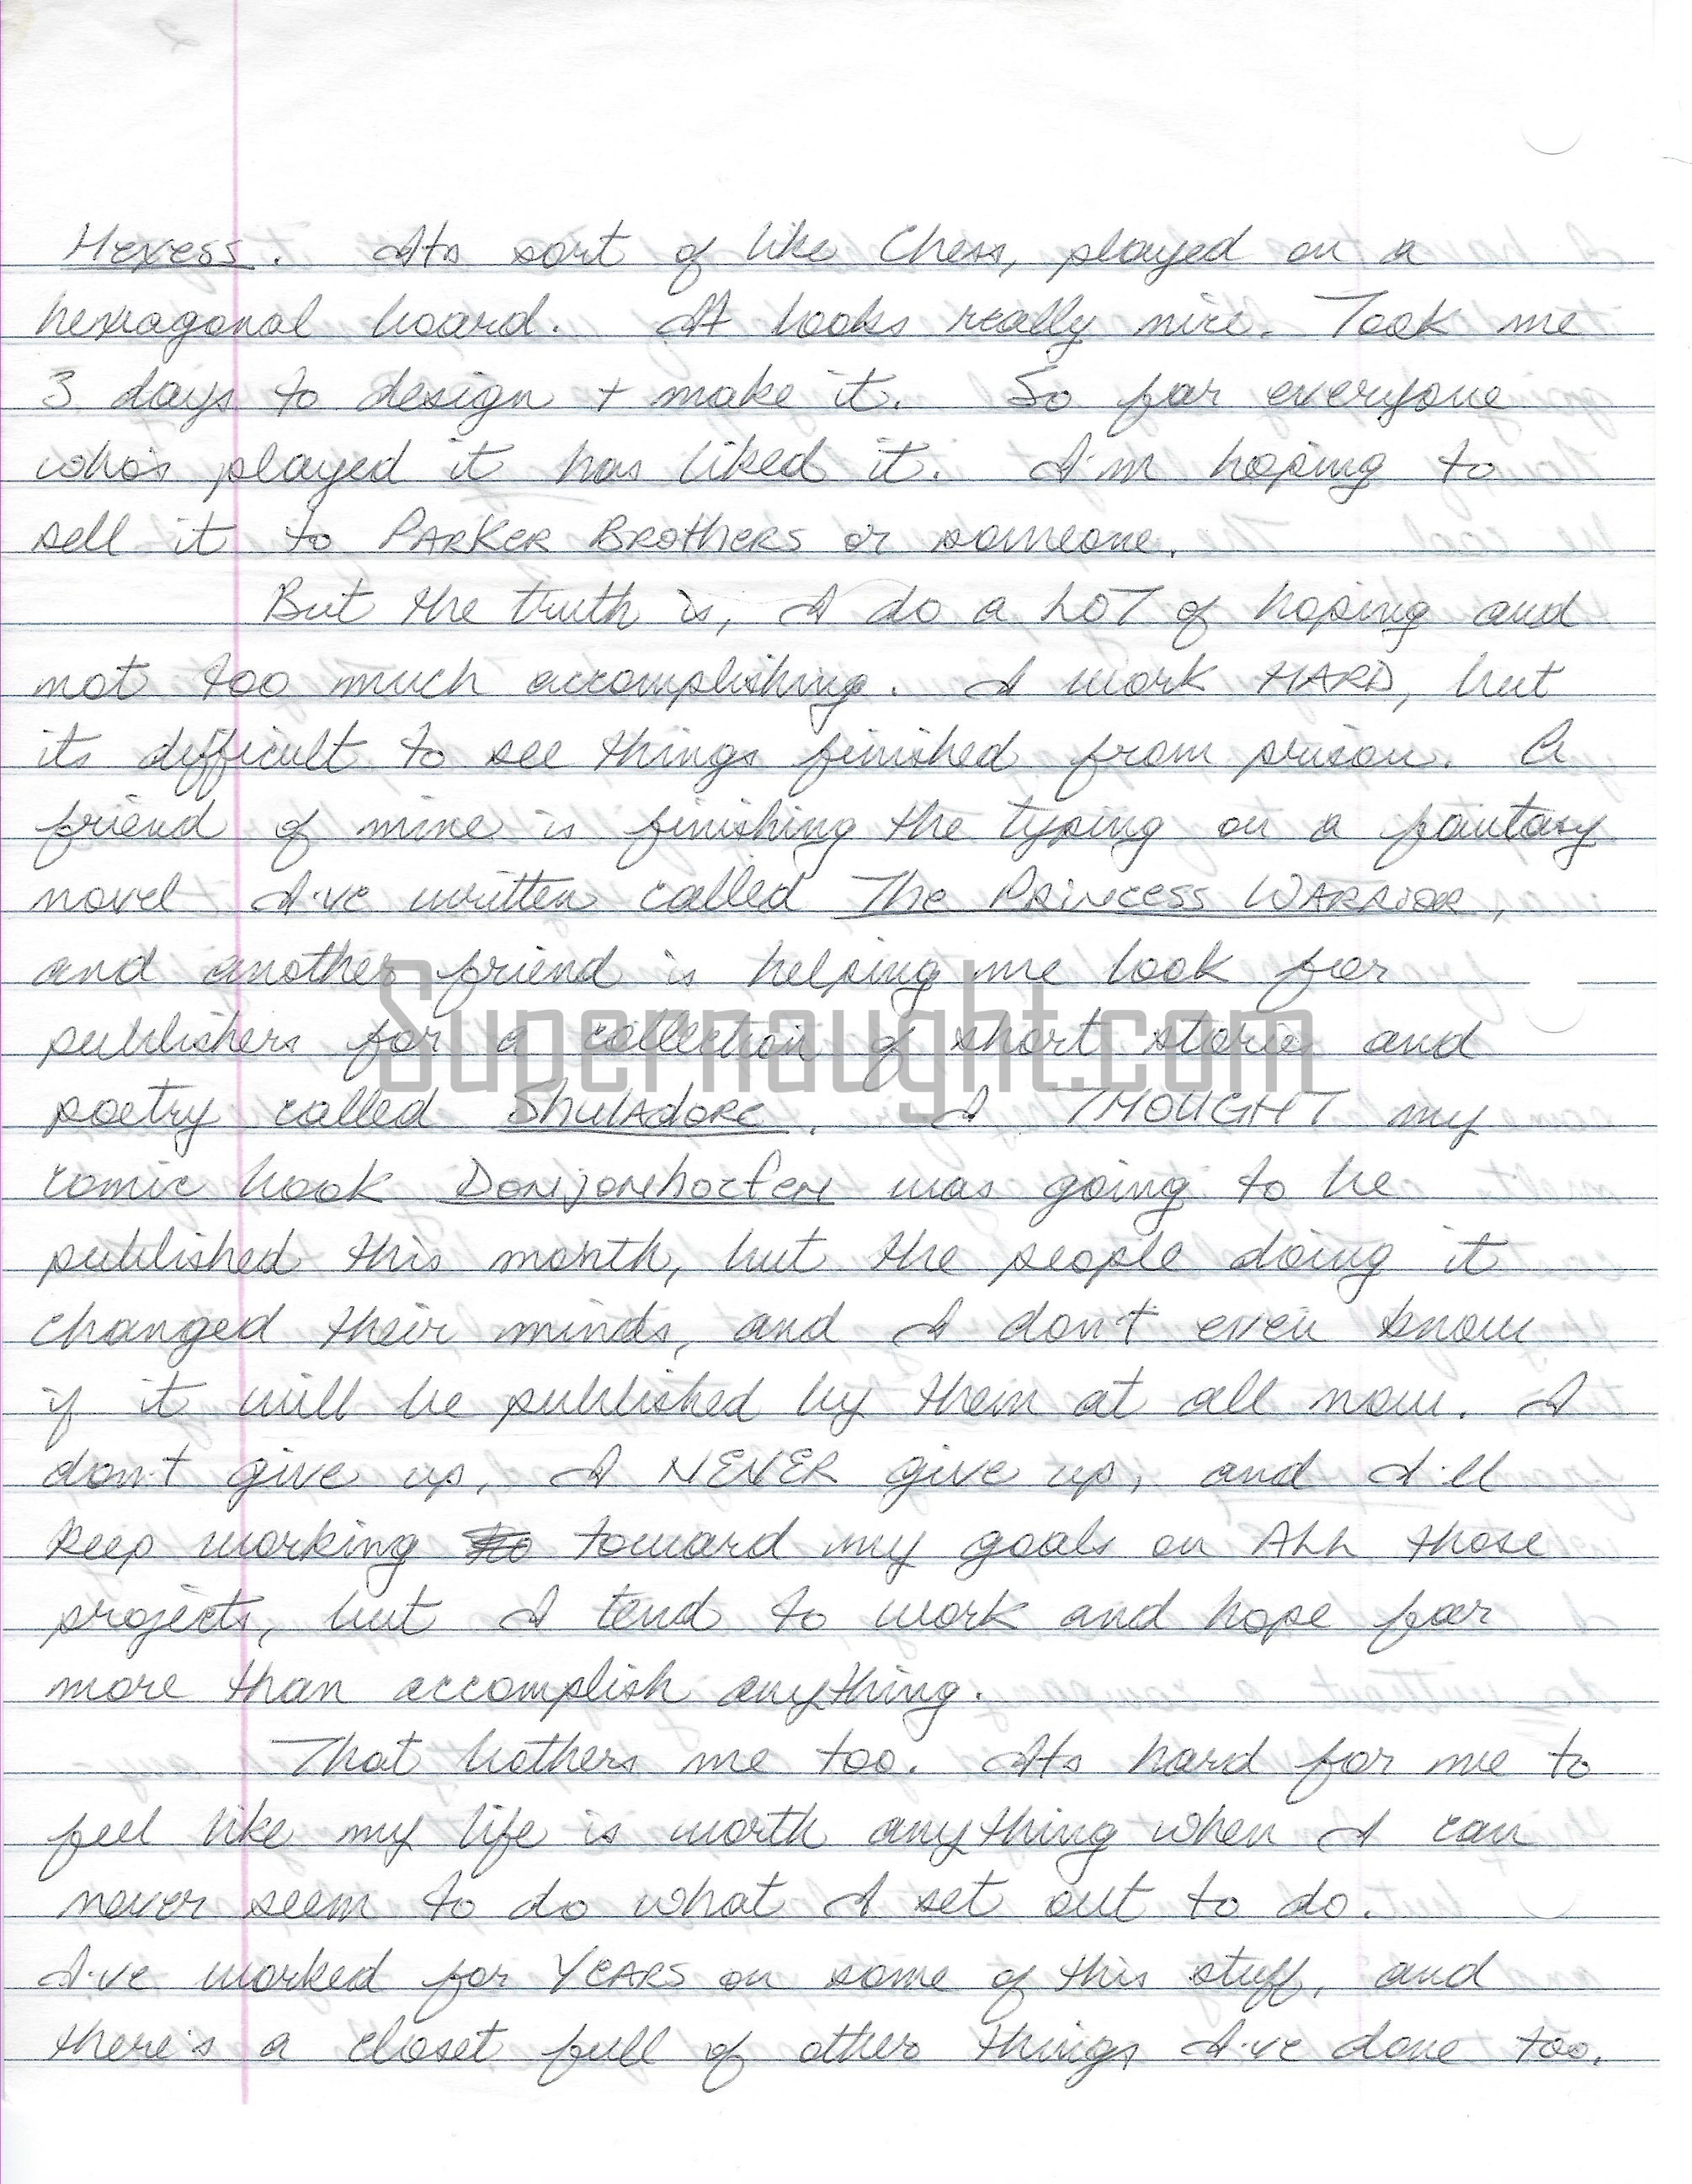 Hexess. Its sort of like Chess, played on a
hexagonal board. It looks really nice. Took me
3 days to design + make it. So far everyone
who's played it has liked it. I'm hoping to
sell it to PARKER BROTHERS or someone.
But the truth is, I do a LOT of hoping and
not too much accomplishing. I work HARD, but
its difficult to see things finished from prison. A
friend of mine is finishing the typing on a fantasy
novel I've written called The PRINCESS WARRIOR,
and another friend is helping me look for
publishers for a collection of short stories and
poetry called ShulAdore. I THOUGHT my
comic book Donjonhocfen was going to be
published this month, but the people doing it
changed their minds, and I don't even know
if it will be published by them at all now. I
don't give up, I NEVER give up, and I'll
keep working toward my goals on ALL those
projects, but I tend to work and hope far
more than accomplish anything.
That bothers me too. Its hard for me to
feel like my life is worth anything when I can
never seem to do what I set out to do.
I've worked for YEARS on some of this stuff, and
there's a closet full of other things I've done too.
Supernaught.com